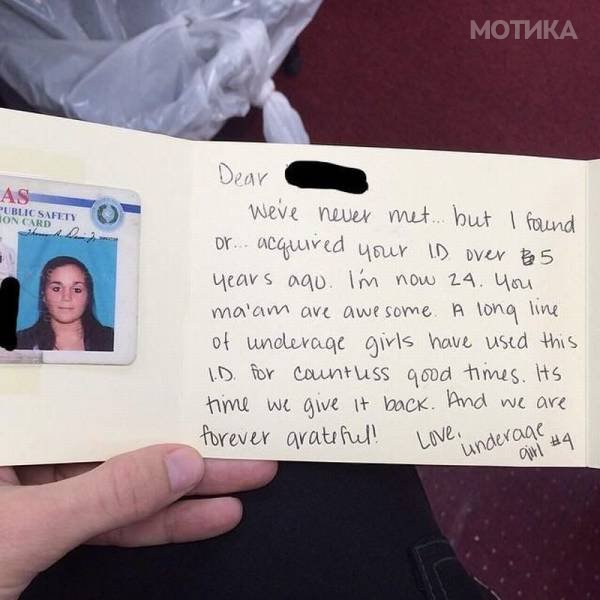 МОТИКА
AS
PUBLIC SAFETY
ION CARD
DIRECTOR
Dear
We've never met... but I found
or... acquired your ID over 5
years ago. I'm now 24. You
ma'am are awesome. A long line
of underage girls have used this
I.D. for countless good times. Its
time we give it back. And we are
forever grateful!
Love,
underage
girl #4